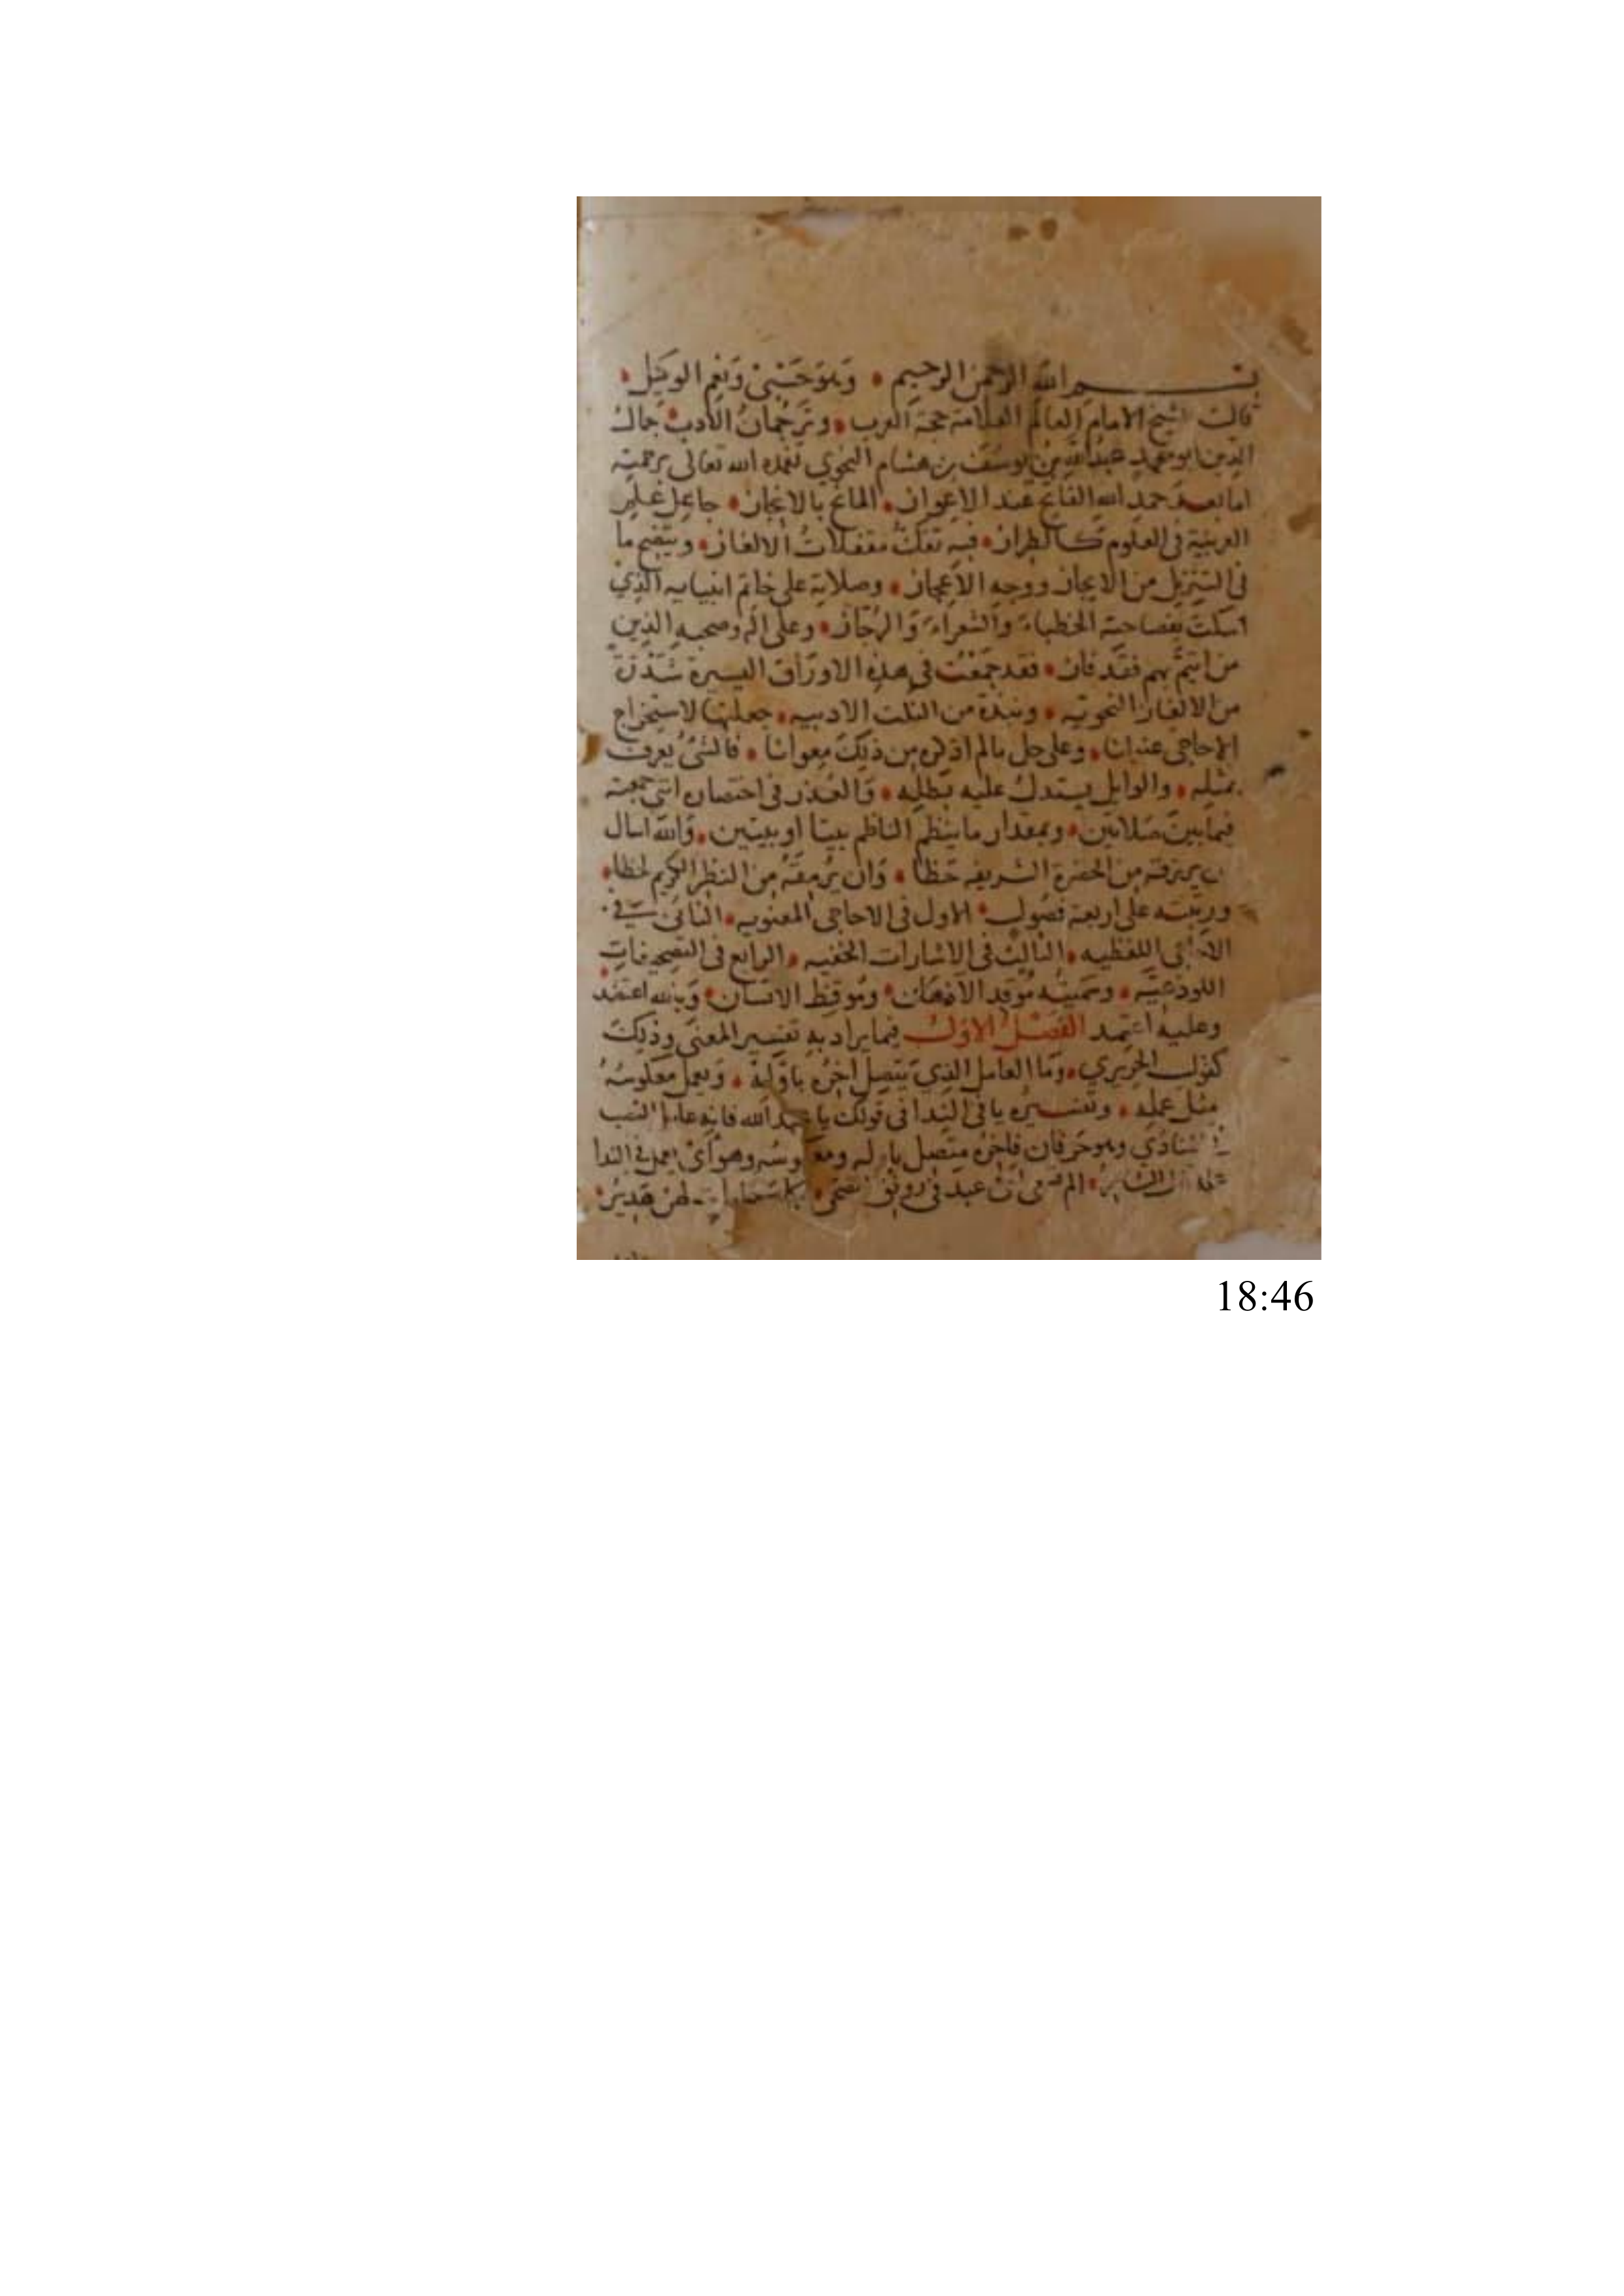 بسم الله الرحمن الرحيم وهو حسبي ونعم الوكيل
قال الشيخ الامام العالم العلامة حجة العرب وترجمان الادب جمال
الدين ابو محمد عبد الله بن يوسف بن هشام النحوي تغمده الله تعالى برحمته
اما بعد حمد الله الفاتح عند الاعواز المانح بالانجاز جاعل علم
العربية في العلوم كالطراز فبه تفك مقفلات الالغاز ويتضح ما
في التنزيل من الايجاز ووجه الاعجاز وصلاته على خاتم انبيايه الذي
اسكت بفصاحته الخطباء والشعراء والرجاز وعلى اله وصحبه الذين
من ايتم بهم فقد فاز فقد جمعت في هذه الاوراق اليسيرة شذرة
من الالغاز النحويه ونبذة من النكت الادبيه جعلتها لاستخراج
الاحاجي عنوانا وعلى حل ما لم اذكره من ذلك معوانا فالشئ يعرف
بمثله والوابل يستدل عليه بطله والعذر في اختصاره انني جمعته
فيما بين صلاتين وبمقدار ما ينظم الناظم بيتا او بيتين والله اسال
ان يرزقه من الحضرة الشريفه حظا وان يرمقه من النظر الكريم لحظا
ورتبته على اربعة فصول الاول في الاحاجي المعنويه الثاني في
الاحاجي اللفظيه الثالث في الاشارات الخفيه الرابع في التصحيفات
اللوذعيه وسميته موقد الاذهان وموقظ الوسنان وبالله اعتضد
وعليه اعتمد الفصل الاول فيما يراد به تفسير المعنى وذلك
كقول الحريري وما العامل الذي يتصل اخره باوله ويعمل معكوسه
مثل عمله وتفسيره يا في الندا في قولك يا عبد الله فانه عامل النصب
في المنادي وهو حرفان فاخره متصل باوله ومعكوسه وهو اي يعمل في الندا
عبد في رونق الضحى
18:46